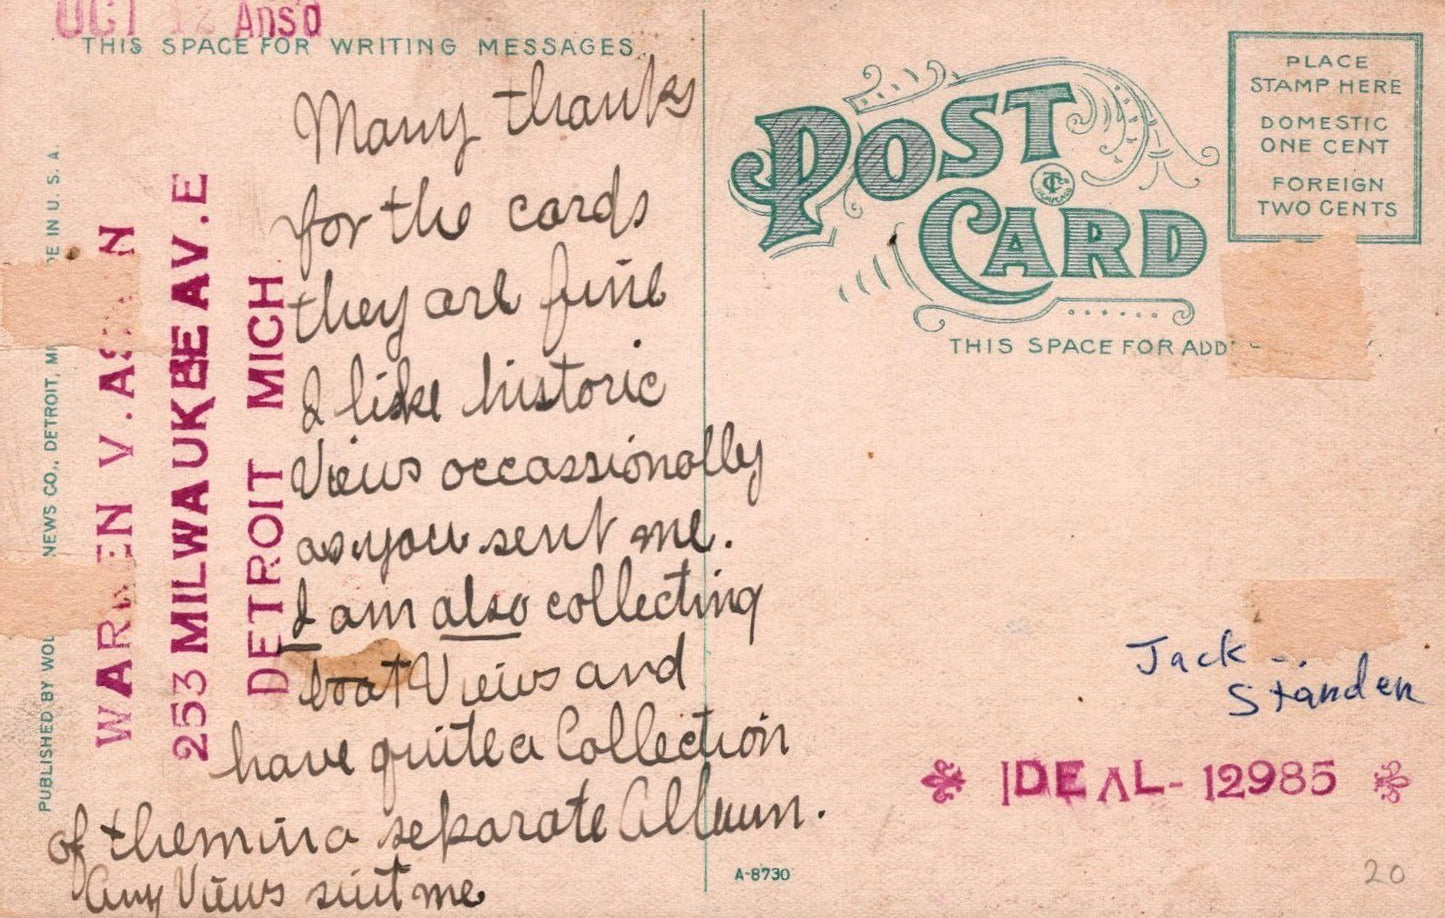 OCT 12 Ans'd
THIS SPACE FOR WRITING MESSAGES
Many thanks
for the cards
they are fine
I like historic
Views occassionally
as you sent me.
I am also collecting
boat Views and
have quite a Collection
of them in a separate Album.
Any Views suit me
WARREN V.
253 MILWAUKEE AV.E
DETROIT MICH
PUBLISHED BY
NEWS CO., DETROIT,
IN U. S. A.
POST
CARD
PLACE
STAMP HERE
DOMESTIC
ONE CENT
FOREIGN
TWO CENTS
THIS SPACE FOR
Jack
Standen
IDEAL-12985
A-8730
20